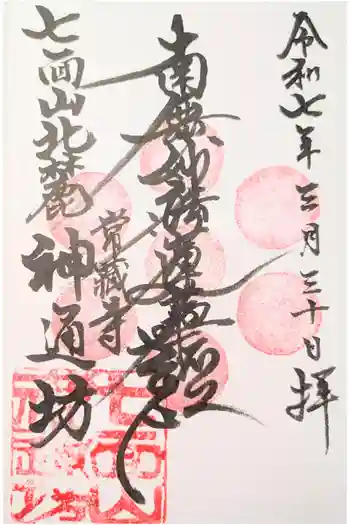 令和七年三月三十日 拝
南無妙法蓮華経
常蔵寺
七面山北麓 神通坊